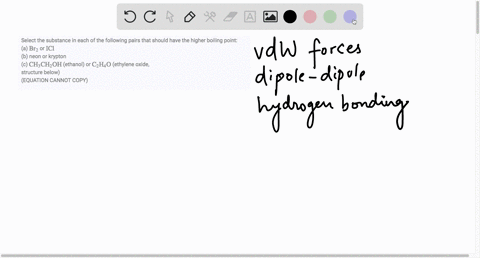 Select the substance in each of the following pairs that should have the higher boiling point:
(a) Br₂ or ICl
(b) neon or krypton
(c) CH₃CH₂OH (ethanol) or C₂H₄O (ethylene oxide,
structure below)
(EQUATION CANNOT COPY)
vdW forces
dipole-dipole
hydrogen bonding